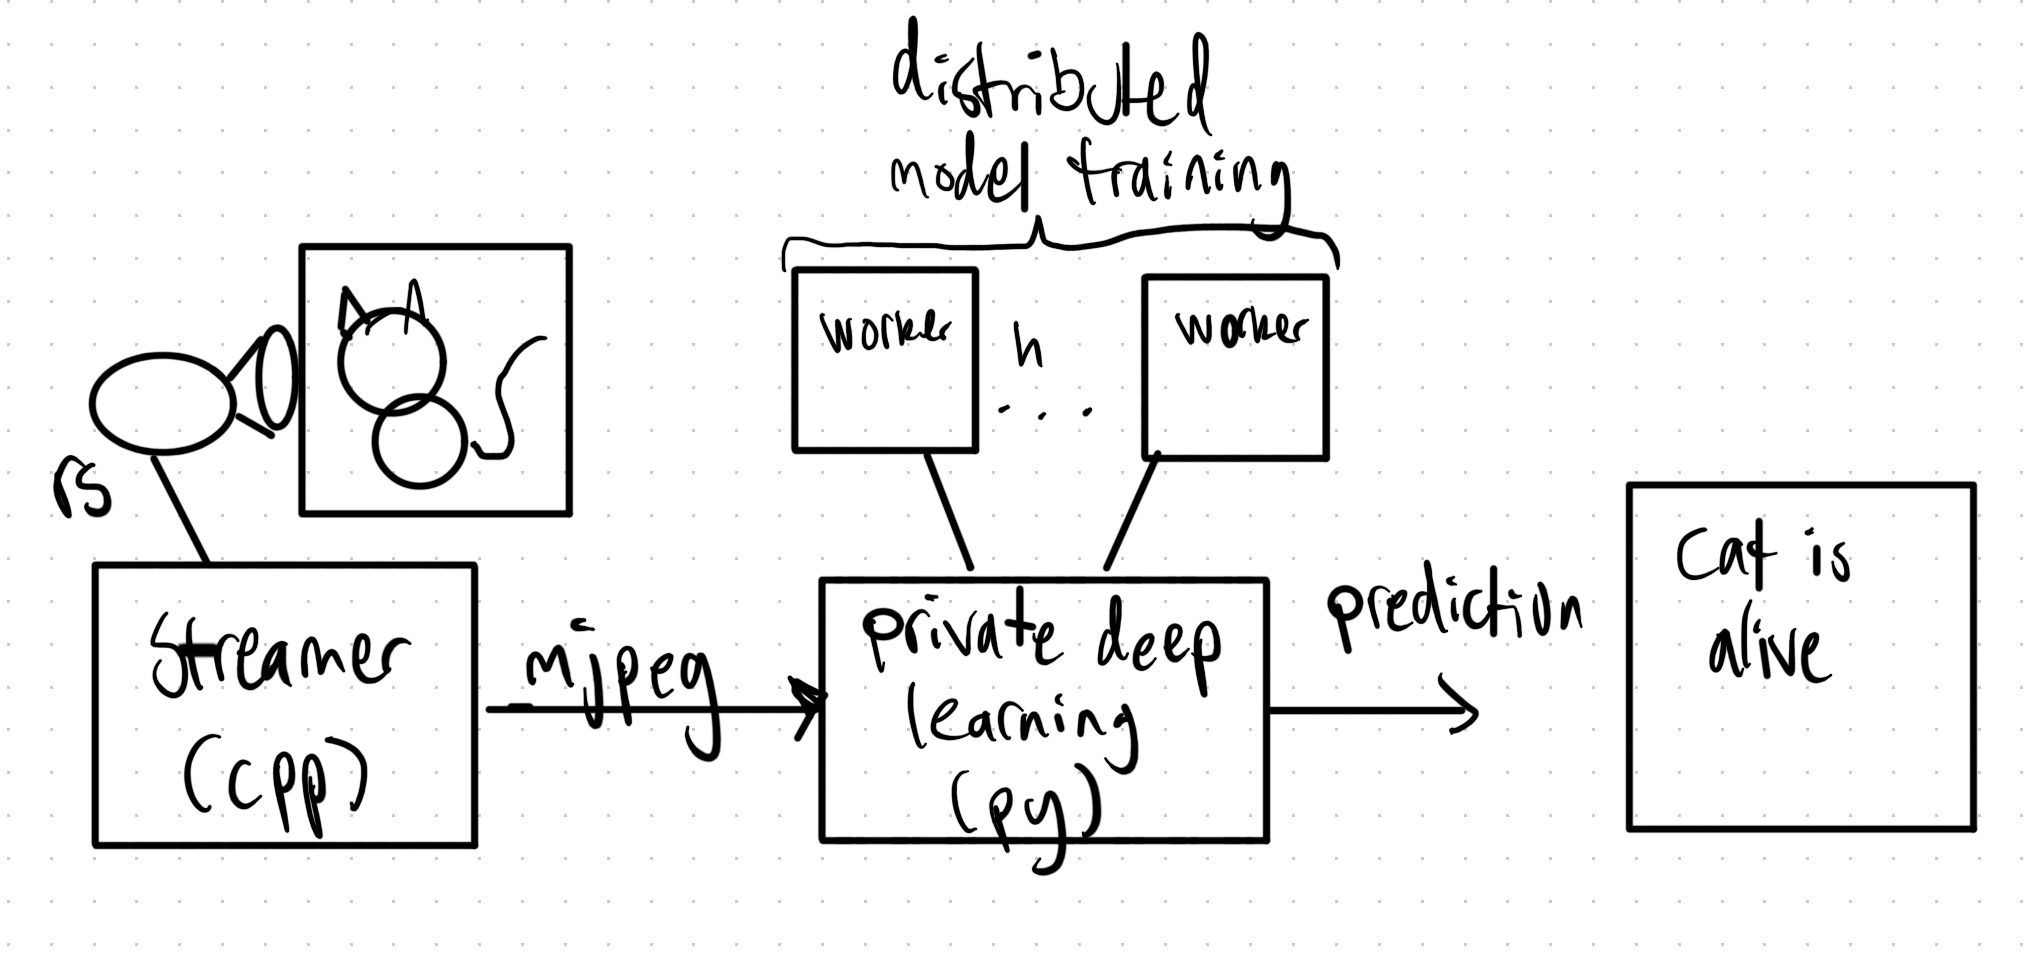 distributed
model training
worker
n
...
worker
rs
Streamer
(cpp)
mjpeg
private deep
learning
(py)
prediction
Cat is
alive